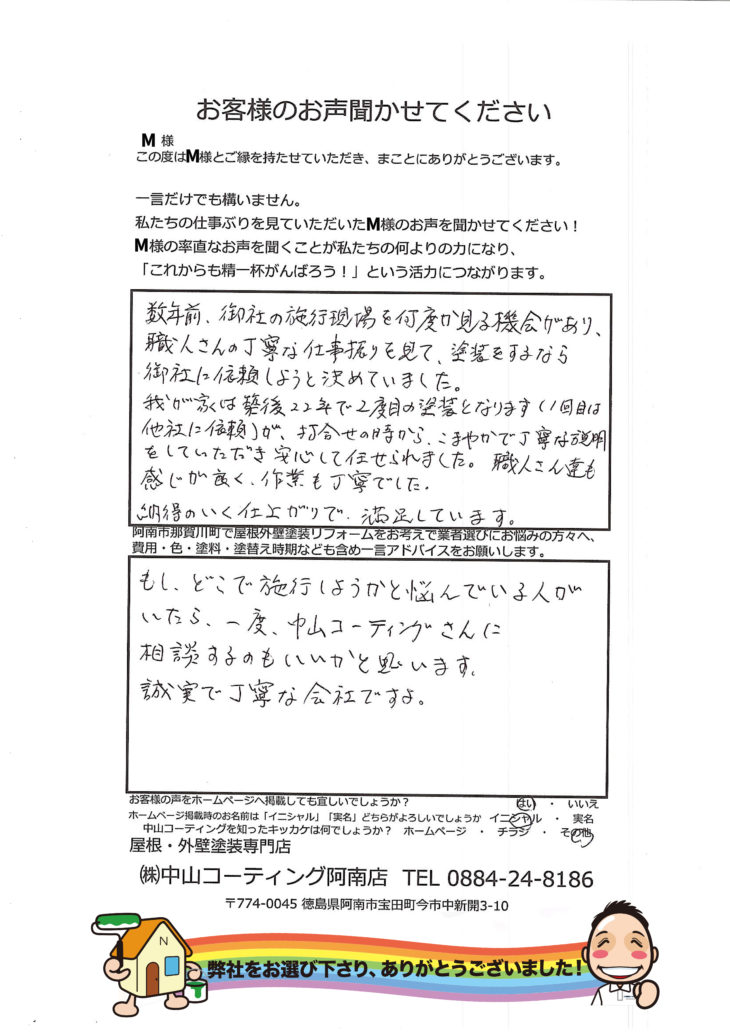 お客様のお声聞かせてください
M 様
この度はM様とご縁を持たせていただき、まことにありがとうございます。
一言だけでも構いません。
私たちの仕事ぶりを見ていただいたM様のお声を聞かせてください！
M様の率直なお声を聞くことが私たちの何よりの力になり、
「これからも精一杯がんばろう！」という活力につながります。
数年前、御社の施行現場を何度か見る機会があり、
職人さんの丁寧な仕事振りを見て、塗装をするなら
御社に依頼しようと決めていました。
我が家は築後22年で2度目の塗装となります(1回目は
他社に依頼)が、打合せの時から、こまやかで丁寧な説明
をしていただき安心して任せられました。職人さん達も
感じが良く、作業も丁寧でした.
納得のいく仕上がりで、満足しています。
阿南市那賀川町で屋根外壁塗装リフォームをお考えで業者選びにお悩みの方々へ、
費用・色・塗料・塗替え時期なども含め一言アドバイスをお願いします。
もし、どこで施行しようかと悩んでいる人が
いたら、一度、中山コーティングさんに
相談するのもいいかと思います。
誠実で丁寧な会社ですよ。
お客様の声をホームページへ掲載しても宜しいでしょうか？ はい ・ いいえ
ホームページ掲載時のお名前は「イニシャル」「実名」どちらがよろしいでしょうか イニシャル ・ 実名
中山コーティングを知ったキッカケは何でしょうか？ ホームページ ・ チラシ ・ その他
屋根・外壁塗装専門店
㈱中山コーティング阿南店 TEL 0884-24-8186
〒774-0045 徳島県阿南市宝田町今市中新開3-10
N
弊社をお選び下さり、ありがとうございました！